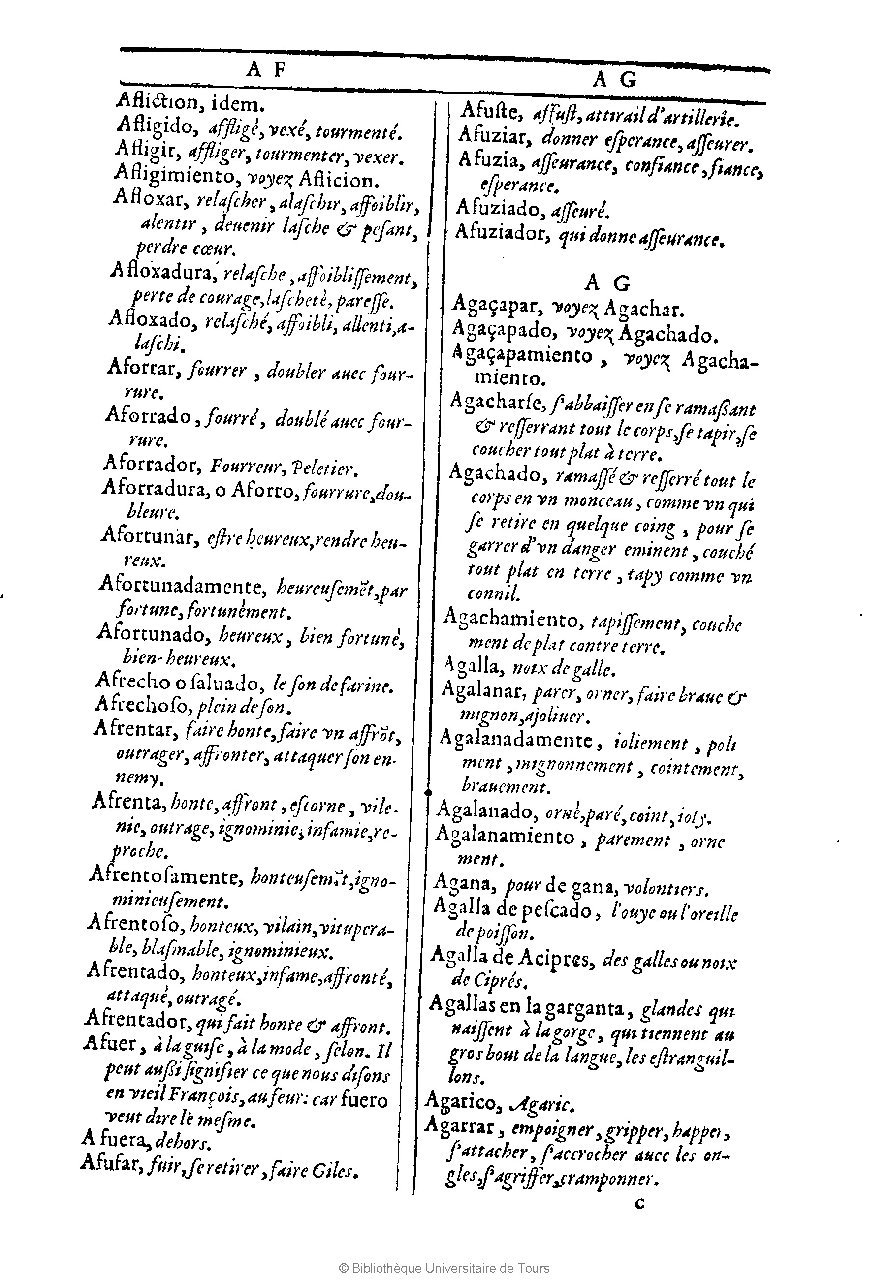 A F
Afliction, idem.
Afligido, affligè, vexé, tourmenté.
Afligir, affliger, tourmenter, vexer.
Afligimiento, voyez Aflicion.
Afloxar, relaſcher, alaſchir, affoiblir,
alentir, deuenir laſche & peſant,
perdre cœur.
Afloxadura, relaſche, affoibliſſement,
perte de courage, laſchetè, pareſſe.
Afloxado, relaſché, affoibli, allenti, a-
laſchi.
Aforrar, fourrer, doubler auec four-
rure.
Aforrado, fourré, doublé auec four-
rure.
Aforrador, Fourreur, Peletier.
Aforradura, o Aforro, fourrure, dou-
bleure.
Afortunar, eſtre heureux, rendre heu-
reux.
Afortunadamente, heureuſemẽt, par
fortune, fortunèment.
Afortunado, heureux, bien fortunè,
bien-heureux.
Afrecho o ſaluado, le ſon de farine.
Afrechoſo, plein de ſon.
Afrentar, faire honte, faire vn affrõt,
outrager, affronter, attaquer ſon en-
nemy.
Afrenta, honte, affront, eſcorne, vile-
nie, outrage, ignominie, infamie, re-
proche.
Afrentoſamente, honteuſemẽt, igno-
minieuſement.
Afrentoſo, honteux, vilain, vitupera-
ble, blaſmable, ignominieux.
Afrentado, honteux, infame, affronté,
attaquè, outragé.
Afrentador, qui fait honte & affront.
Afuer, à la guiſe, à la mode, ſelon. Il
peut auſſi ſignifier ce que nous diſons
en vieil François, au feur: car fuero
veut dire le meſme.
A fuera, dehors.
Afufar, fuir, ſe retirer, faire Giles.
A G
Afuſte, affuſt, attirail d'artillerie.
Afuziar, donner eſperance, aſſeurer.
Afuzia, aſſeurance, confiance, fiance,
eſperance.
Afuziado, aſſeuré.
Afuziador, qui donne aſſeurance.
A G
Agaçapar, voyez Agachar.
Agaçapado, voyez Agachado.
Agaçapamiento, voyez Agacha-
miento.
Agacharſe, ſ'abbaiſſer en ſe ramaſsant
& reſſerrant tout le corps, ſe tapir, ſe
coucher tout plat à terre.
Agachado, ramaſſé & reſſerré tout le
corps en vn monceau, comme vn qui
ſe retire en quelque coing, pour ſe
garrer d'vn danger eminent, couché
tout plat en terre, tapy comme vn
connil.
Agachamiento, tapiſſement, couche
ment de plat contre terre.
Agalla, noix de galle.
Agalanar, parer, orner, faire braue &
mignon, ajoliuer.
Agalanadamente, ioliement, poli
ment, mignonnement, cointement,
brauement.
Agalanado, ornè, paré, coint, ioly.
Agalanamiento, parement, orne
ment.
Agana, pour de gana, volontiers.
Agalla de peſcado, l'ouye ou l'oreille
de poiſſon.
Agalla de Acipres, des galles ou noix
de Ciprés.
Agallas en la garganta, glandes qui
naiſſent à la gorge, qui tiennent au
gros bout de la langue, les eſtranguil-
lons.
Agarico, Agaric.
Agarrar, empoigner, gripper, happer,
ſ'attacher, ſ'accrocher auec les on-
gles, ſ'agriffer, cramponner.
C
© Bibliothèque Universitaire de Tours